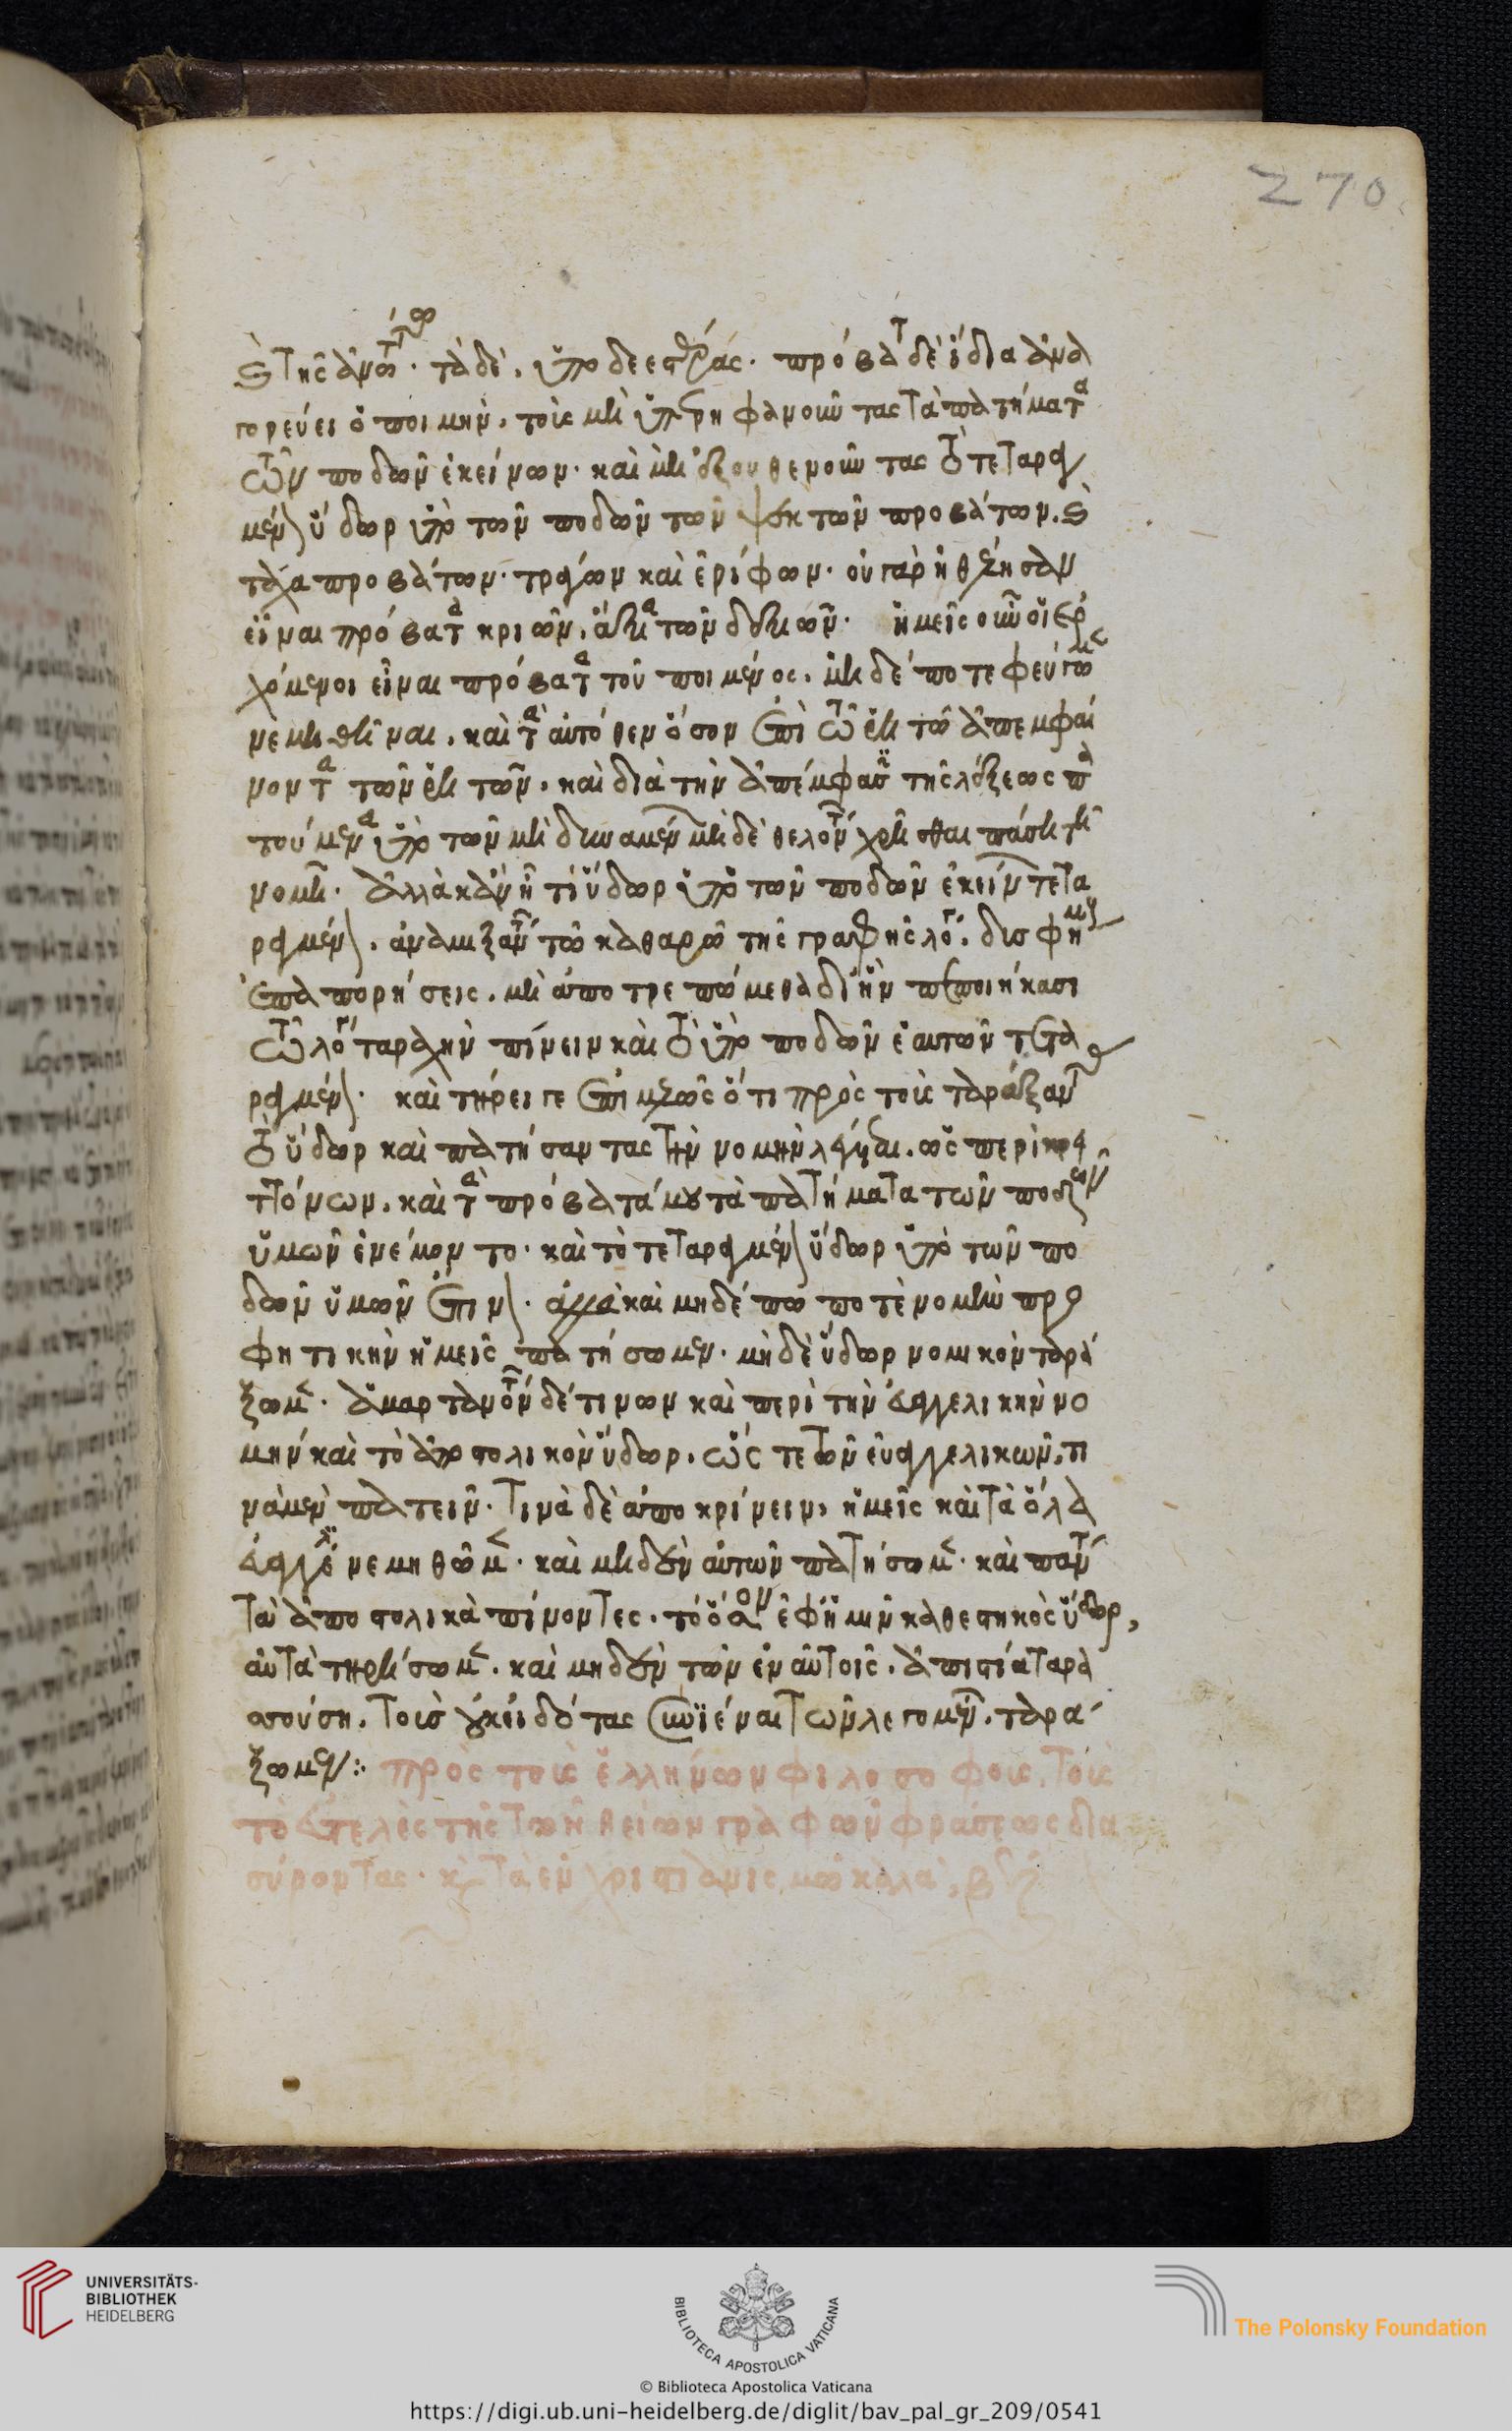 καὶ τῆς ἀνω· τὰ δὲ, ὑπὸ δε · πρόβατα δὲ ἴδια ἀνα
γορεύει ὁ ποιμὴν, τοὺς μὴ ὑπερηφανοῦντας τὰ πατήματα
τῶν ποδῶν ἐκείνων· καὶ μὴ ἐξουθενοῦντας τὸ τεταραγ
μένον ὕδωρ ὑπὸ τῶν ποδῶν τῶν προβάτων. καὶ
τάχα προβάτων· τράγων καὶ ἐρίφων· οὐ γὰρ ἠθέλησαν
εἶναι πρόβατα κριῶν, ἀλλὰ τῶν · ἡμεῖς οὖν οἱ εὐ
χόμενοι εἶναι πρόβατα τοῦ ποιμένος, μηδέποτε φεύγωμεν
νεμηθῆναι, καὶ τὰ αὐτόθεν ὅσον ἐπὶ τῷ ῥητῷ ἀπεμφαί
νοντα τῶν ῥητῶν, καὶ διὰ τὴν ἀπέμφασιν τῆς λέξεως πα
τούμενα ὑπὸ τῶν μὴ δυναμένων μηδὲ θελόντων χρῆσθαι πάσῃ τῇ
νομῇ. ἀλλὰ κἂν ᾖ τι ὕδωρ ὑπὸ τῶν ποδῶν ἐκείνων τετα
ραγμένον, ἀναμιξάντων τῷ καθαρῷ τῆς γραφῆς λόγῳ,
ἐπαπορήσεις, μὴ ἀποτρεπώμεθα δι' ἣν πεποιήκασι
τῷ λόγῳ ταραχὴν πίνειν καὶ τὸ ὑπὸ ποδῶν ἑαυτῶν τετα
ραγμένον· καὶ τήρει γε ἐπιμελῶς ὅτι πρὸς τοὺς ταράξαντας
τὸ ὕδωρ καὶ πατήσαντας τὴν νομὴν λέγεται, ὡς περὶ κρειτ
τόνων, καὶ τὰ πρόβατά μου τὰ πατήματα τῶν ποδῶν
ὑμῶν ἐνέμοντο· καὶ τὸ τεταραγμένον ὕδωρ ὑπὸ τῶν πο
δῶν ὑμῶν ἔπινον· ἀλλὰ καὶ μηδέπω ποτὲ νομὴν προ
φητικὴν ἡμεῖς πατήσωμεν· μὴ δὲ ὕδωρ νομικὸν ταρά
ξωμεν· ἁμαρτανόντων δέ τινων καὶ περὶ τὴν εὐαγγελικὴν νο
μὴν καὶ τὸ ἀποστολικὸν ὕδωρ, ὥς τε τῶν εὐαγγελικῶν, τι
νὰ μὲν πατεῖν· τινὰ δὲ ἀποκρίνειν, ἡμεῖς καὶ τὰ ὅλα
εὐαγγέλια νεμηθῶμεν· καὶ μηδὲν αὐτῶν πατήσωμεν· καὶ πάντα
τὰ ἀποστολικὰ πίνοντες, τὸ ὅσον ἐφ' ἡμῖν καθεστηκὸς ὕδωρ,
αὐτὰ τηρήσωμεν, καὶ μηδὲν τῶν ἐν αὐτοῖς, ἀπιστίᾳ ταρα
σούσῃ, τοὺς οὐκ εἰδότας συνιέναι τῶν λεγομένων, ταρά
ξωμεν:· πρὸς τοὺς ἑλλήνων φιλοσόφους, τοὺς
τὸ εὐτελὲς τῆς τῶν θείων γραφῶν φράσεως δια
σύροντας· καὶ τὰ ἐν χριστιανισμῷ καλὰ, β
270
UNIVERSITÄTS-
BIBLIOTHEK
HEIDELBERG
BIBLIOTECA APOSTOLICA VATICANA
The Polonsky Foundation
© Biblioteca Apostolica Vaticana
https://digi.ub.uni-heidelberg.de/diglit/bav_pal_gr_209/0541